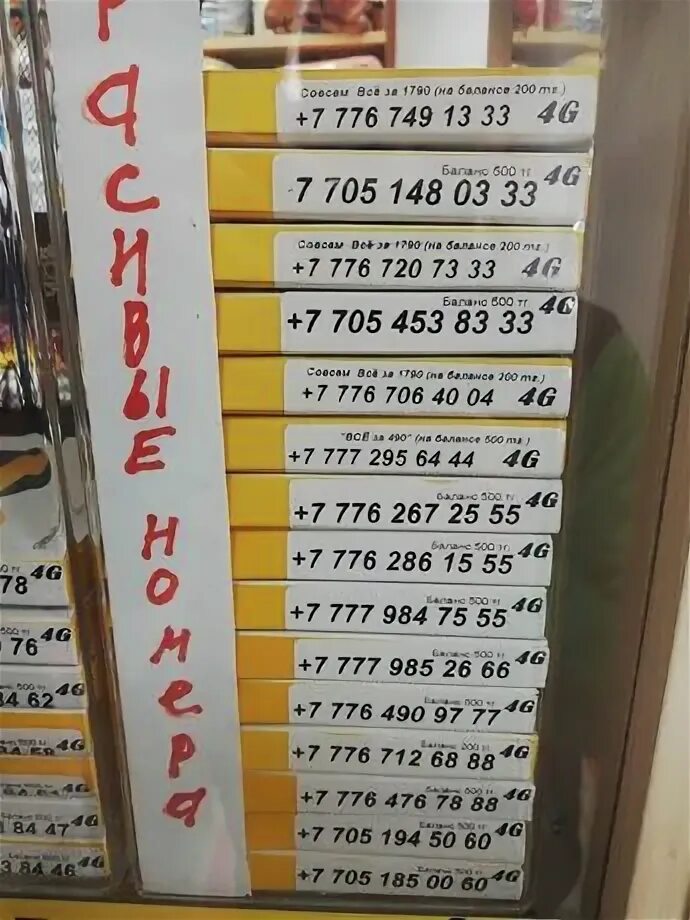 РАСИВЫЕ НОМЕРА
Совсем Всё за 1790 (на балансе 200 тг.)
+7 776 749 13 33 4G
Баланс 500 тг 4G
7 705 148 03 33
Совсем Всё за 1790 (на балансе 200 тг.)
+7 776 720 73 33 4G
Баланс 500 тг. 4G
+7 705 453 83 33
Совсем Всё за 1790 (на балансе 200 тг.)
+7 776 706 40 04 4G
"ВСЁ за 490" (на балансе 500 тг.)
+7 777 295 64 44 4G
Баланс 500 тг. 4G
+7 776 267 25 55
Баланс 500 тг. 4G
+7 776 286 15 55
Баланс 500 тг 4G
+7 777 984 75 55
Баланс 500 тг 4G
+7 777 985 26 66
Баланс 500 тг 4G
+7 776 490 97 77
Баланс 500 тг 4G
+7 776 712 68 88
Баланс 500 тг 4G
+7 776 476 78 88
Баланс 500 тг 4G
+7 705 194 50 60
Баланс 500 тг 4G
+7 705 185 00 60
78 4G
76 4G
84 62 4G
4G
4G
84 47 4G
3 84 46 4G